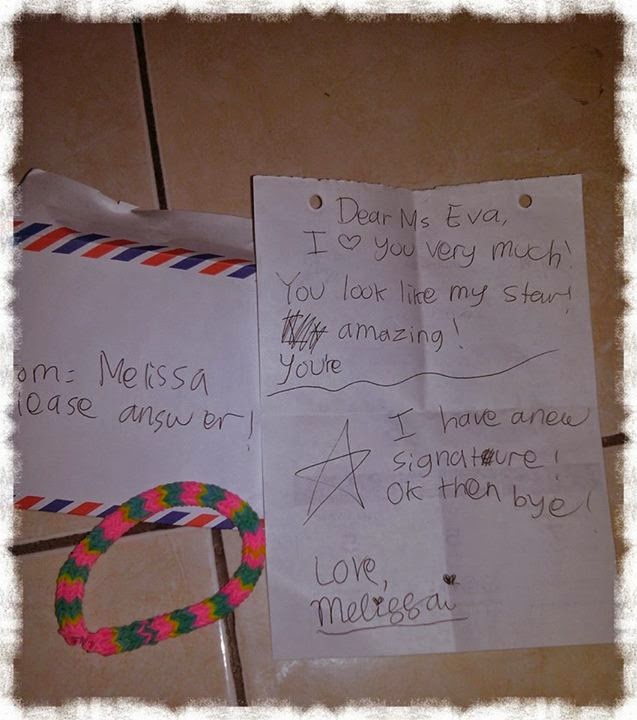 Dear Ms Eva,
I ♡ you very much!
You look like my star!
amazing!
You're
I have a new
signature!
OK then bye!
Love,
Melissa
om: Melissa
lease answer!